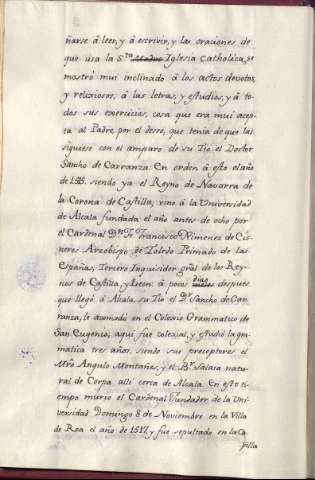 ñarse á leer, y á escrivir, y las oraciones de
que usa la S.ta Madre Iglesia Catholica, se
mostró mui inclinado á los actos devotos,
y relixiosos, á las letras, y estudios, y á to-
dos sus exercicios, cosa que era mui acep-
ta al Padre por el deseo, que tenia de que las
siguiese con el amparo de su Tio el Doctor
Sancho de Carranza. En orden á esto el año
de 1515. siendo ya el Reyno de Navarra de
la Corona de Castilla, vino á la Universidad
de Alcala fundada el año antes de ocho por
el Cardenal D.n Fr. Francisco Ximenez de Cis-
neros Arzobispo de Toledo Primado de las
Españas, Tercero Inquisidor gñal de los Rey-
nos de Castilla, y Leon: á pocos dias despues
que llegó á Alcala, su Tio el D.r Sancho de Car-
ranza, le acomodó en el Colexio Grammatico de
San Eugenio; aqui fue colexial, y estudió la gra-
matica tres años, siendo sus preceptores el
Mro Angulo Montañas, y el B.r Salaia natu-
ral de Corpa alli cerca de Alcala. En este ti-
empo murio el Cardenal Fundador de la Uni-
versidad Domingo 8 de Noviembre en la Villa
de Roa el año de 1517. y fue sepultado en la Ca-
pilla